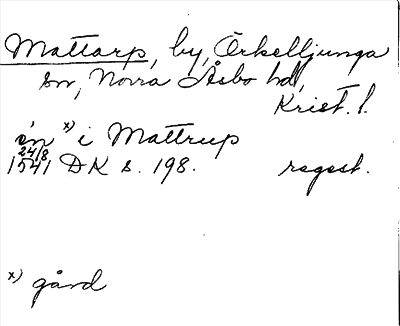 Mattarp, by, Örkelljunga
sn, Norra Åsbo hd,
Krist. l.
en x) i Mattrup
24/8
1541 DK s. 198. regest.
x) gård